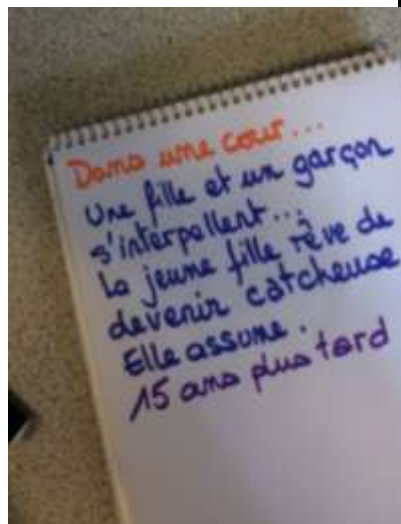 Dans une cour...
Une fille et un garçon
s'interpellent...
La jeune fille rêve de
devenir catcheuse
Elle assume.
15 ans plus tard